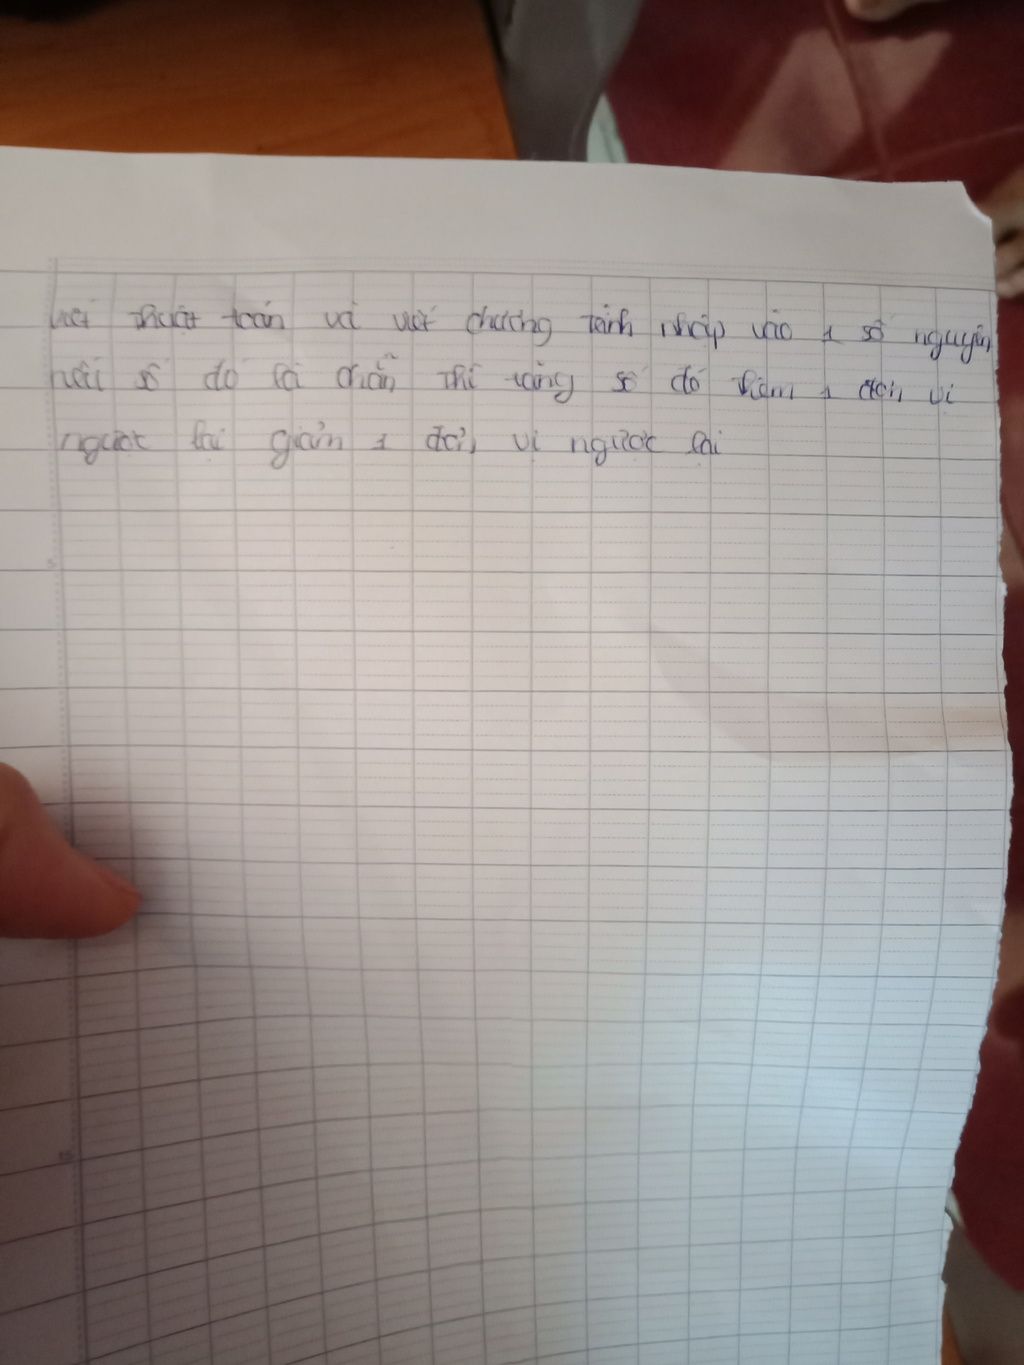 viết thuật toán và viết chương trình nhập vào 1 số nguyên
nếu số đó là chẵn thì tăng số đó thêm 1 đơn vị
ngược lại giản 1 đơn vị ngược lại